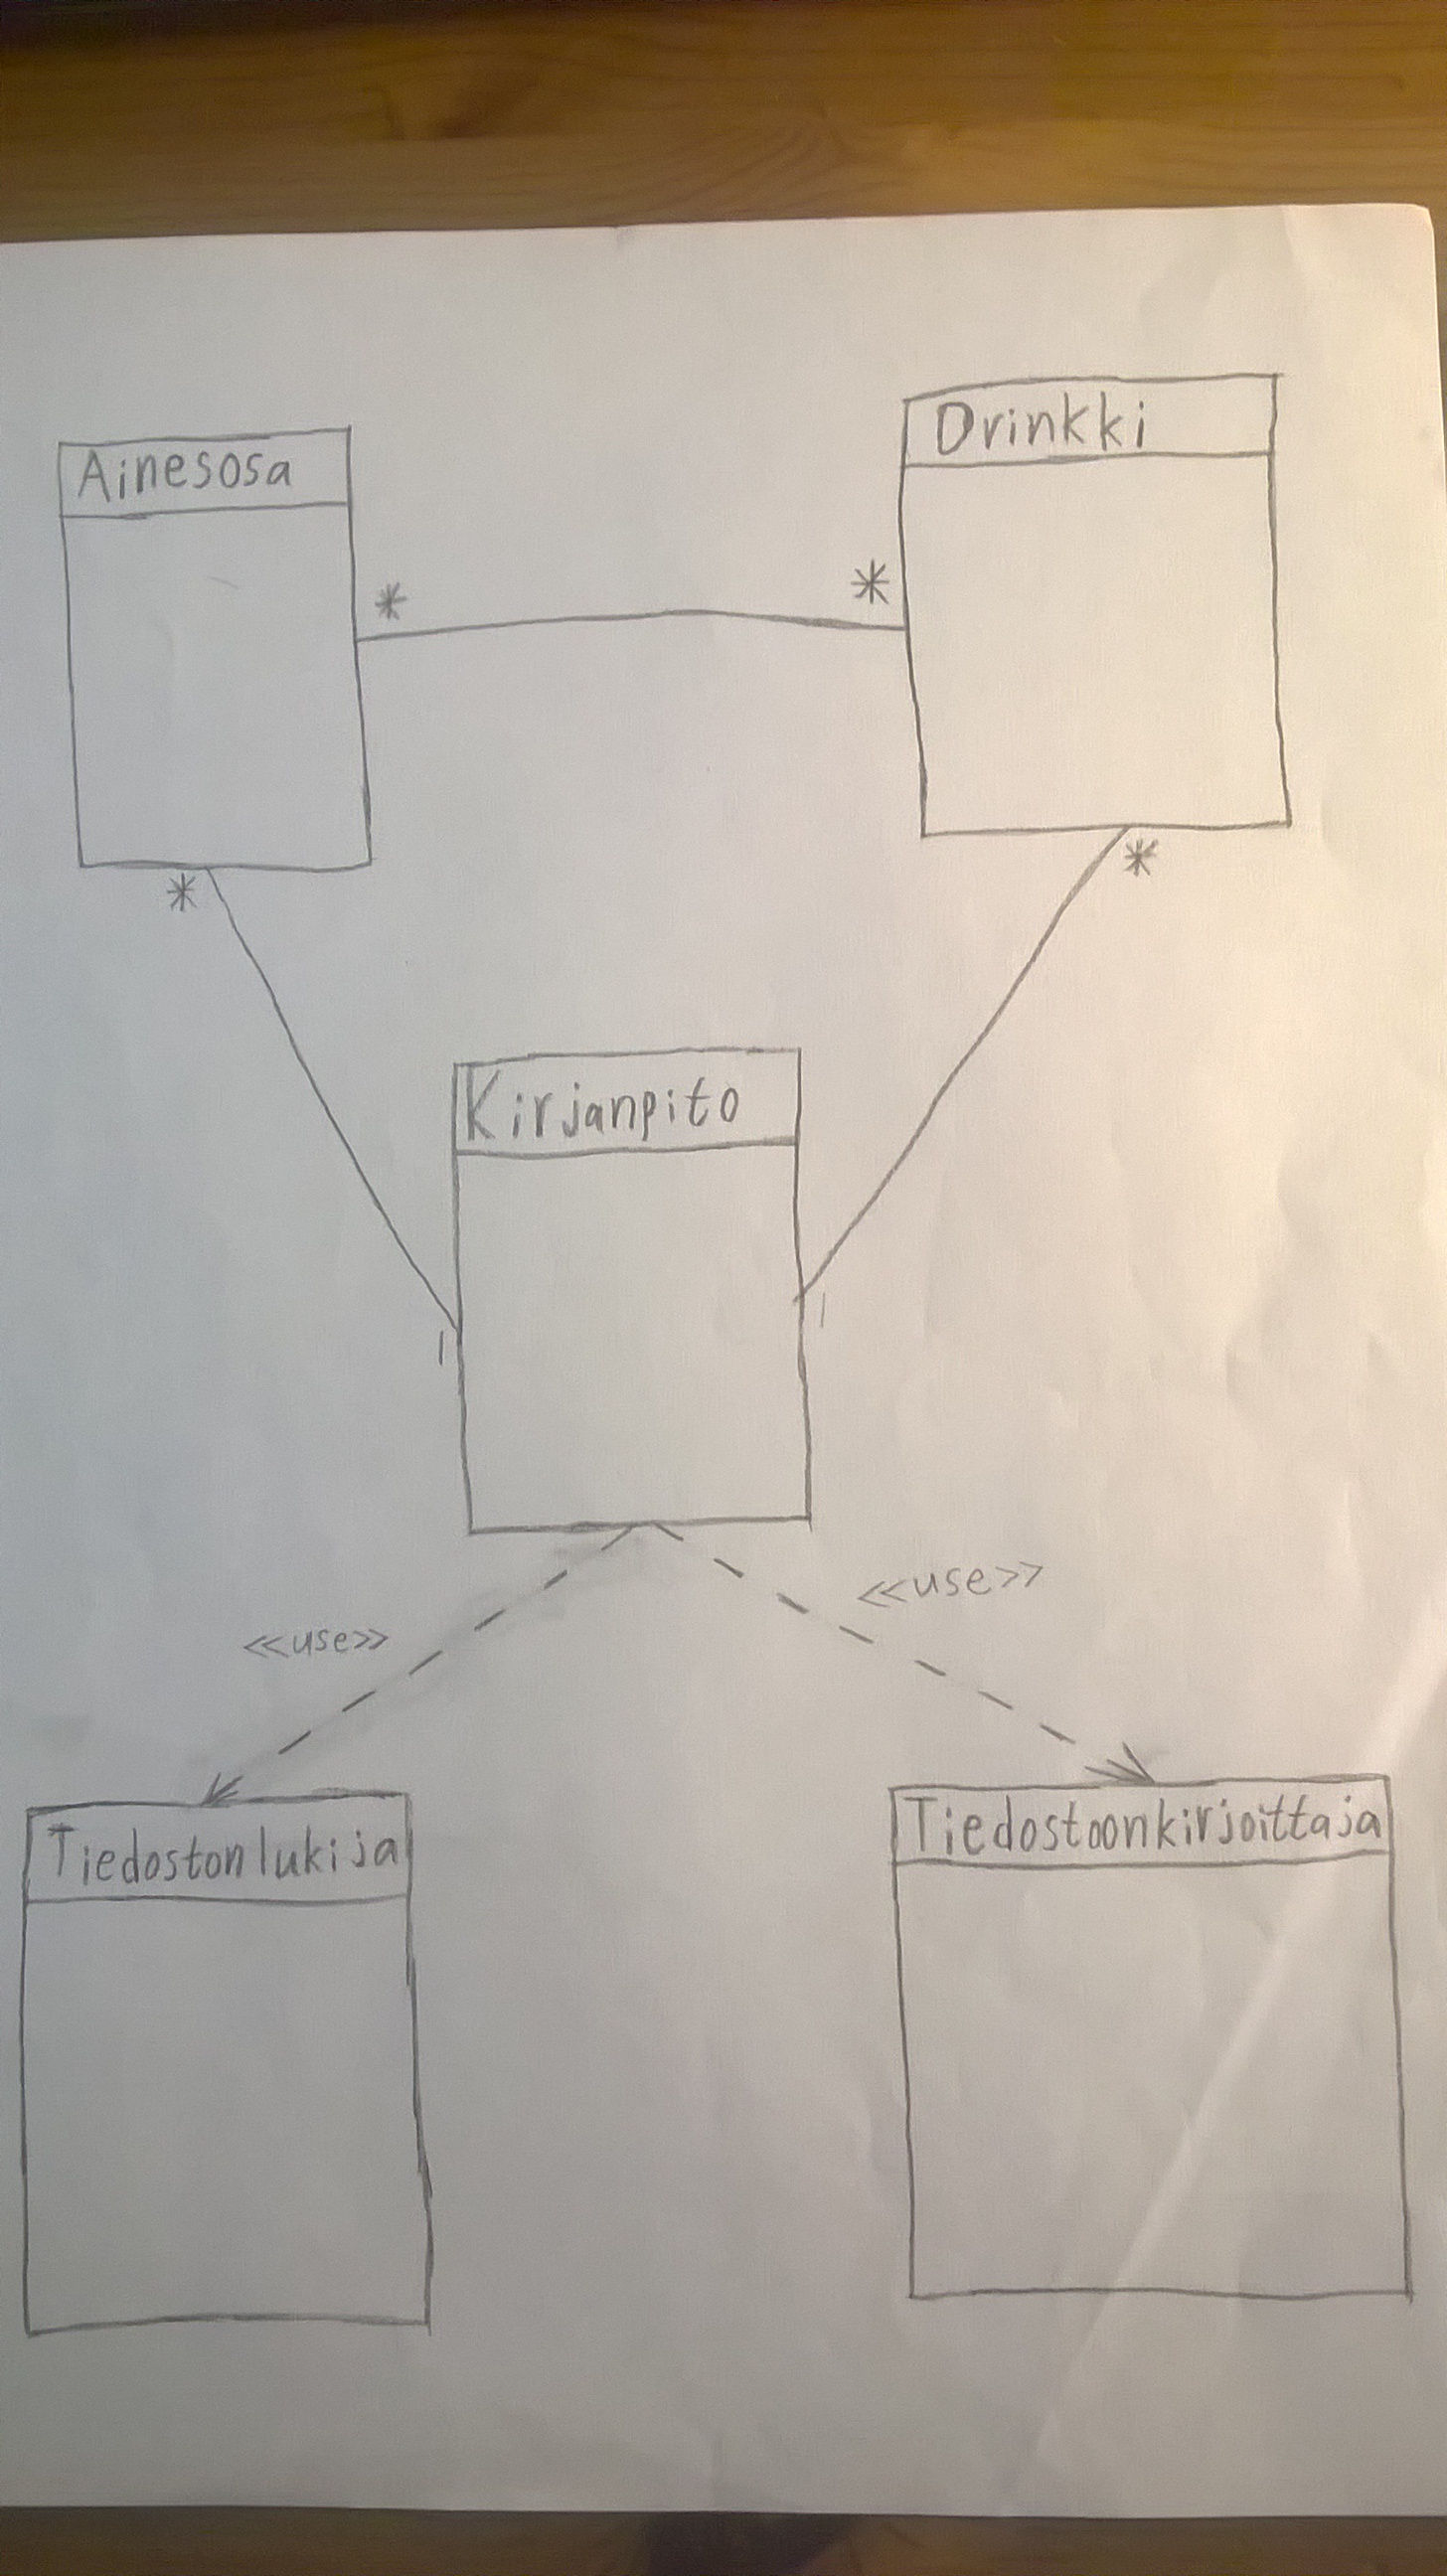 Drinkki
Ainesosa
*
*
*
*
Kirjanpito
1
1
<<use>>
<<use>>
Tiedostonlukija
Tiedostoonkirjoittaja